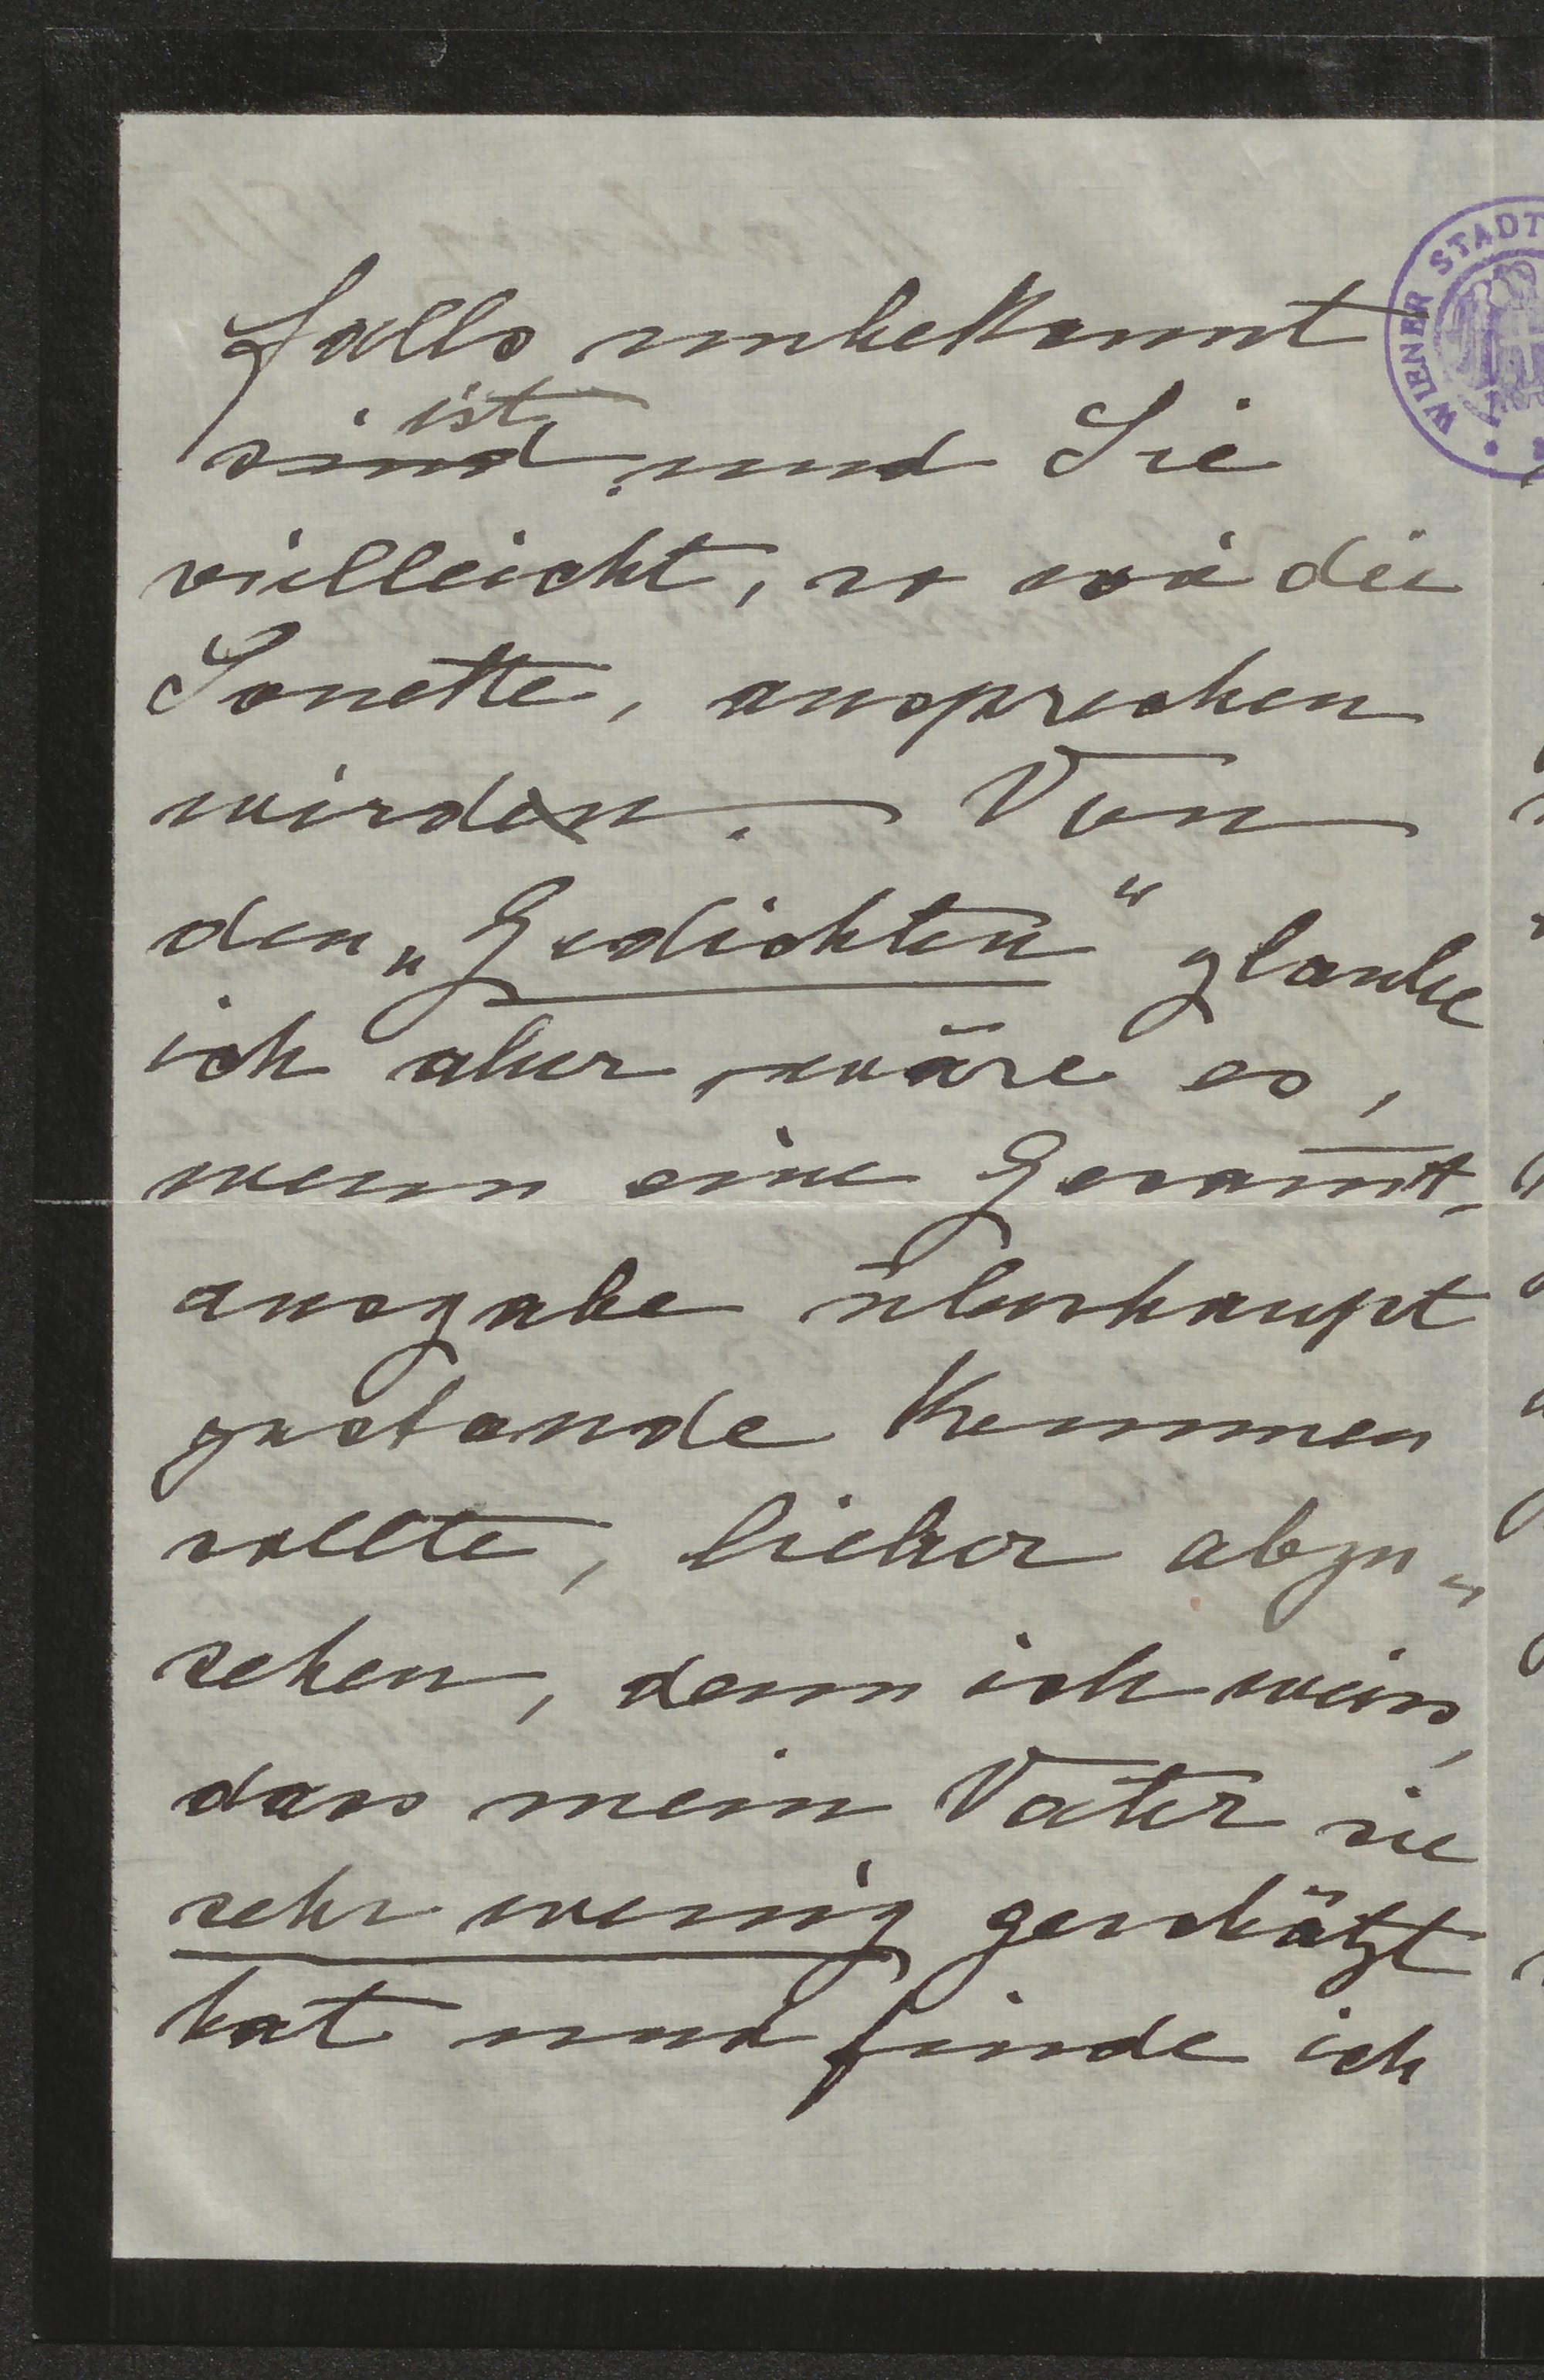 falls unbekannt
ist
sind und Sie
vielleicht, so wie die
Sonette, ansprechen
wirden. Von
den „Gedichten" glaube
ich aber, wäre es,
wenn eine Gesamt-
ausgabe überhaupt
zustande kommen
sollte, lieber abzu-
sehen, denn ich weiss,
dass mein Vater sie
sehr wenig geschätzt
hat und finde ich
WIENER STADT